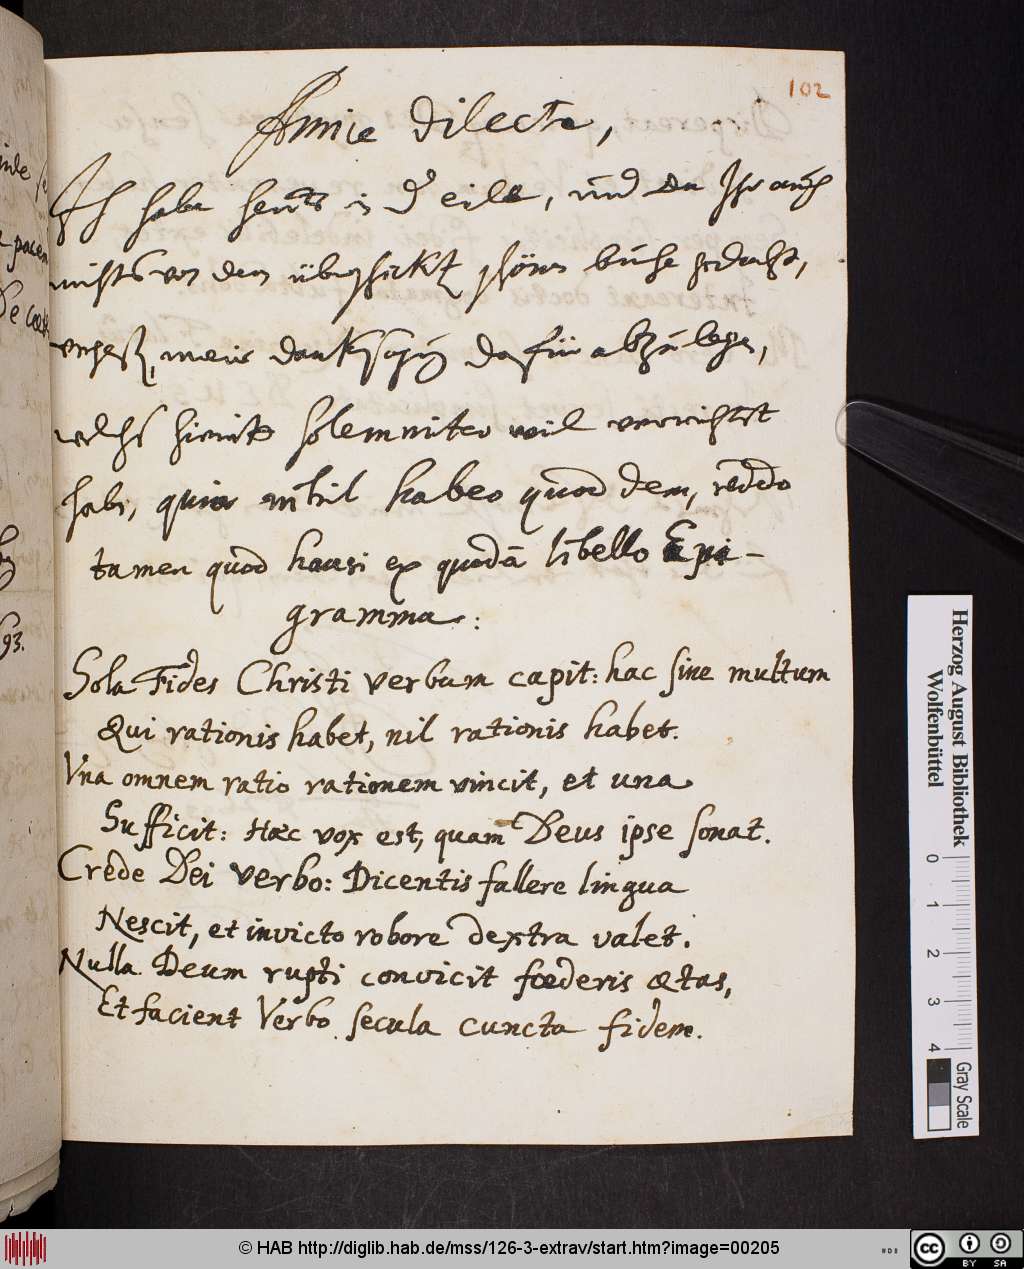 102
Amice dilecte,
Ich habe heut in d eile, und da Ihr auch
nichts von dem überschickt schönen buche gedacht,
meine danksagung dafür abzulegen,
welchs hiemit solemniter wil verrichtet
haben, quia nihil habeo quod dem, reddo
tamen quod hausi ex quodā libello Epi-
gramma:
Sola Fides Christi verbum capit: hac sine multum
Qui rationis habet, nil rationis habet.
Vna omnem ratio rationem vincit, et una
Sufficit: Hæc vox est, quam Deus ipse sonat.
Crede Dei verbo: Dicentis fallere lingua
Nescit, et invicto robore dextra valet.
Nulla Deum rupti convicit fœderis ætas,
Et facient Verbo secula cuncta fidem.
93.
Herzog August Bibliothek
Wolfenbüttel
0 1 2 3 4
Gray Scale
© HAB http://diglib.hab.de/mss/126-3-extrav/start.htm?image=00205
cc BY SA